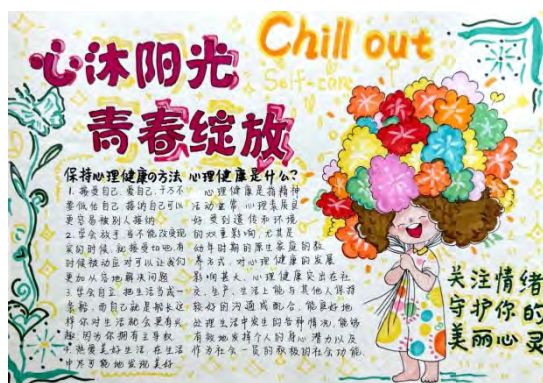 Chill out
Self-care
心沐阳光
青春绽放
保持心理健康の方法
1.接受自己.爱自己.千万不
要低估自己.接纳自己可以
更容易被别人接纳.
2.学会放手.当不能改变现
实的时候.就接受如也.有
时候被动应对可以让我们
更加从容地解决问题.
3.学会自立.把生活当成一
条船.而自己就是船长.这
样你对生活就会更有兴
趣.因为你拥有主导权.
4.热爱美好生活.在生活
中尽可能地发现美好
心理健康是什么?
心理健康是指精神
活动正常、心理素质良
好.受到遗传和环境
的双重影响,尤其是
幼年时期的原生家庭的教
养方式,对心理健康的发展
影响甚大.心理健康突出在社
交、生产、生活上能与其他人保持
较好的沟通或配合,能良好地
处理生活中发生的各种情况,能够
有效地发挥个人的身心潜力以及
作为社会一员的积极的社会功能.
关注情绪
守护你的
美丽心灵